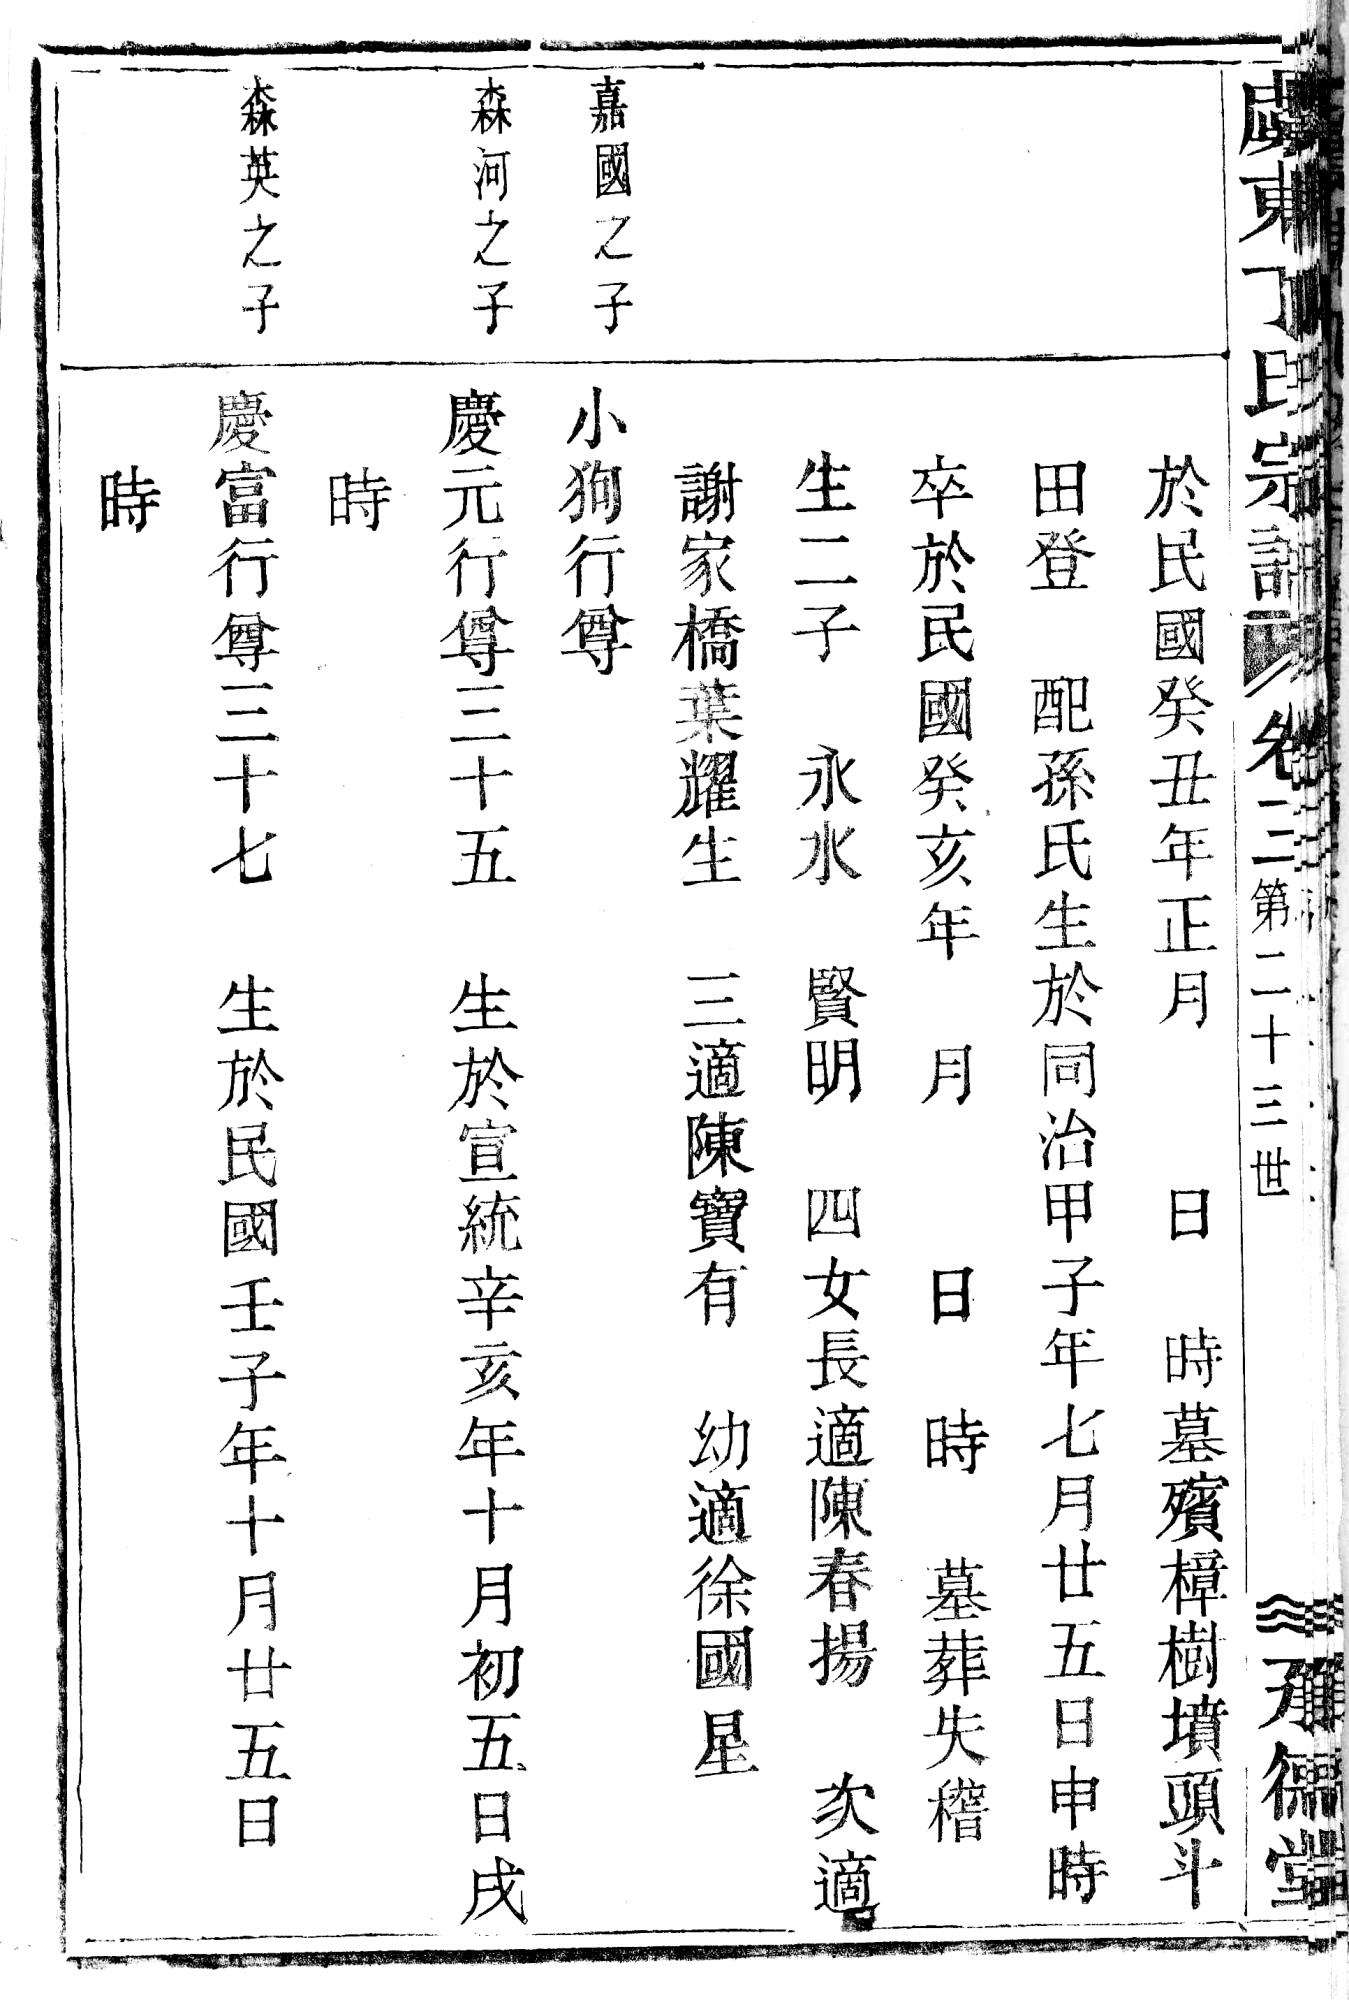 東丁氏宗譜 卷三 第二十三世 承德堂
於民國癸丑年正月 日 時墓殯樟樹墳頭斗
田登 配孫氏生於同治甲子年七月廿五日申時
卒於民國癸亥年 月 日 時 墓葬失稽
生二子 永水 賢明 四女長適陳春揚 次適
謝家橋葉耀生 三適陳寶有 幼適徐國星
嘉國之子
小狗行尊
森河之子
慶元行尊三十五 生於宣統辛亥年十月初五日戌
時
森英之子
慶富行尊三十七 生於民國壬子年十月廿五日
時